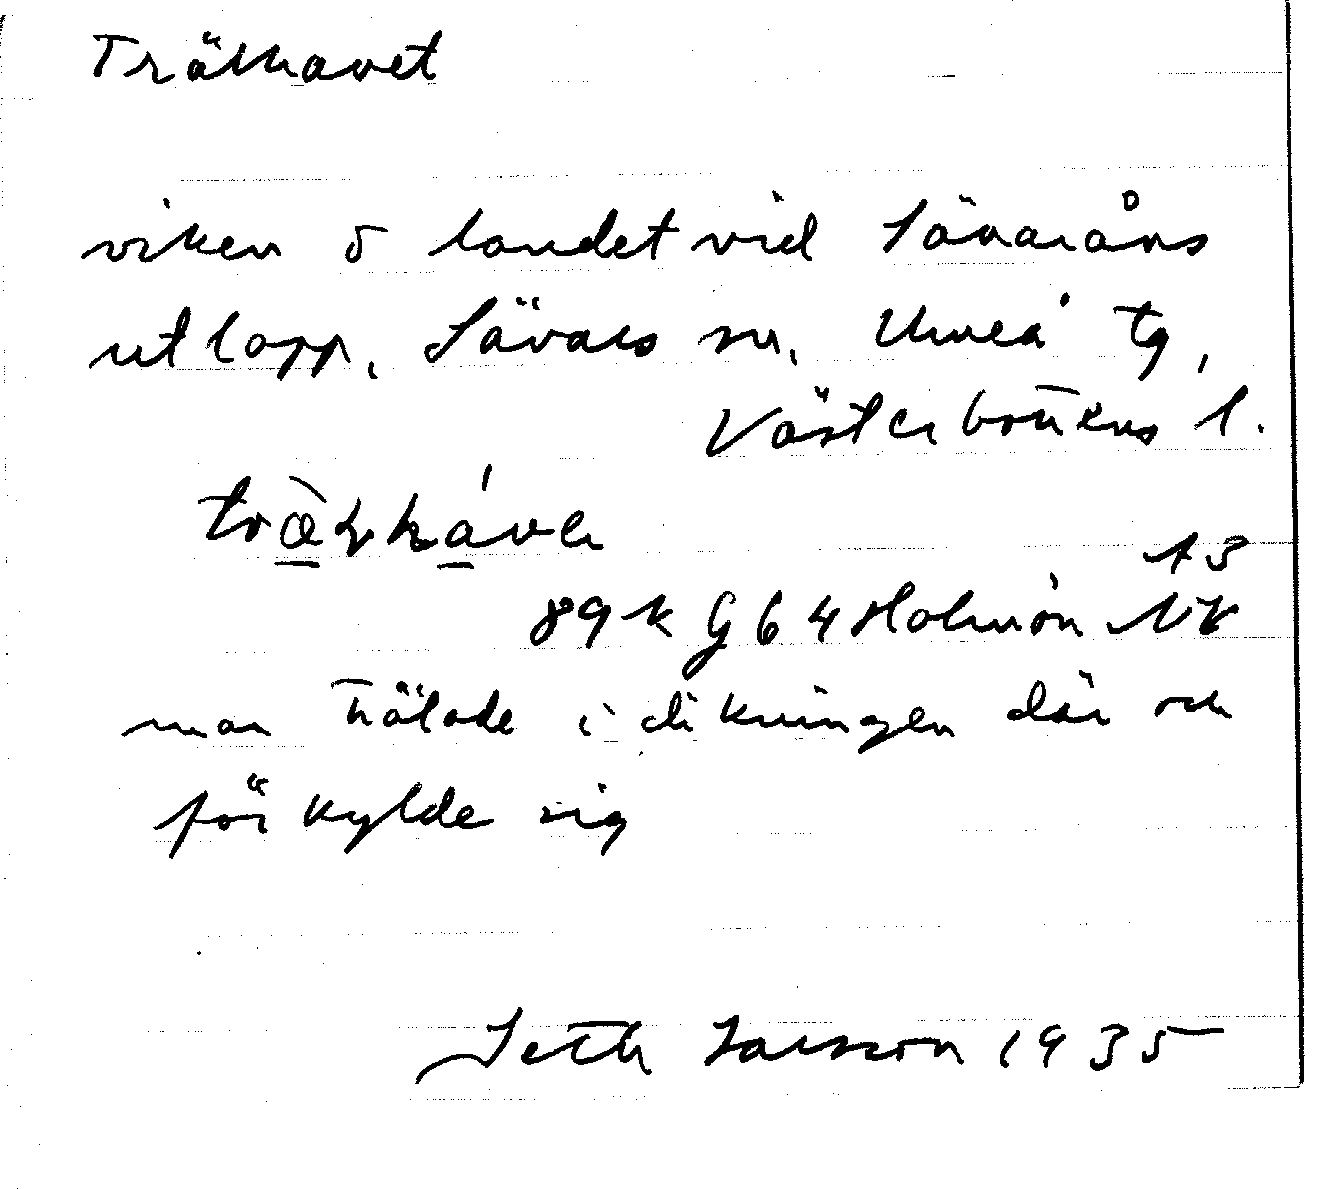 Trälhavet
viken o landet vid Sävaråns
utlopp, Sävars sn, Umeå tg,
Västerbottens l.
AS
89 k G 64 Holmön NV
man trälade i dikningen där och
förkylde sig
Seth Larsson 1935